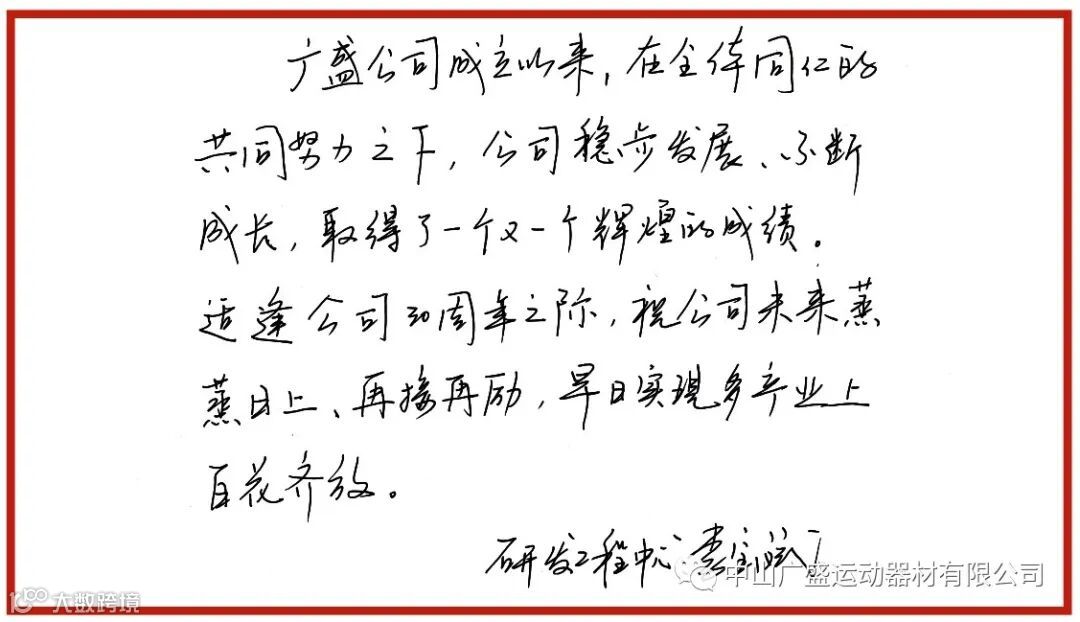 广盛公司成立以来，在全体同仁的
共同努力之下，公司稳步发展、不断
成长，取得了一个又一个辉煌的成绩。
适逢公司30周年之际，祝公司未来蒸
蒸日上、再接再励，早日实现多产业上
百花齐放。
研发工程中心
中山广盛运动器材有限公司
大数跨境